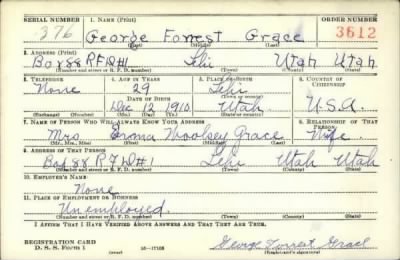 SERIAL NUMBER 1. NAME (Print) ORDER NUMBER
376 George Forrest Grace 3612
(First) (Middle) (Last)
2. ADDRESS (Print)
Box 88 R F D #1 Lehi Utah Utah
(Number and street or R. F. D. number) (Town) (County) (State)
3. TELEPHONE 4. AGE IN YEARS 5. PLACE OF BIRTH 6. COUNTRY OF CITIZENSHIP
None 29 Lehi
DATE OF BIRTH (Town or county)
Dec. 12, 1910 Utah U.S.A.
7. NAME OF PERSON WHO WILL ALWAYS KNOW YOUR ADDRESS 8. RELATIONSHIP OF THAT PERSON
Mrs. Erma Woolsey Grace Wife
(Mr., Mrs., Miss) (First) (Middle) (Last)
9. ADDRESS OF THAT PERSON
Box 88 R F D #1 Lehi Utah Utah
(Number and street or R. F. D. number) (Town) (County) (State)
10. EMPLOYER'S NAME
None
11. PLACE OF EMPLOYMENT OR BUSINESS
Unemployed
(Number and street or R. F. D. number) (Town) (County) (State)
I AFFIRM THAT I HAVE VERIFIED ABOVE ANSWERS AND THAT THEY ARE TRUE.
REGISTRATION CARD
D. S. S. FORM 1 George Forrest Grace
(over) (Registrant's signature)